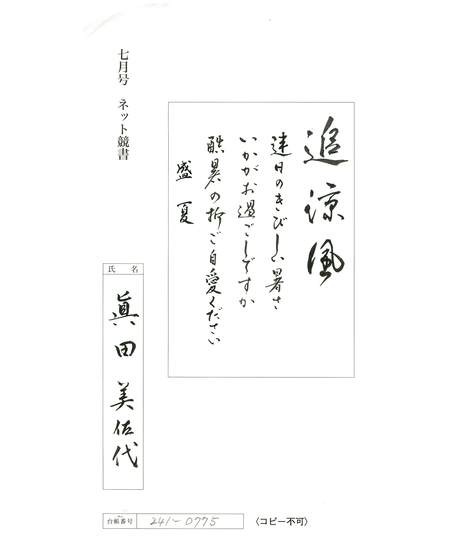 七月号 ネット競書
追涼風
連日のきびしい暑さ
いかがお過ごしですか
酷暑の折ご自愛ください
盛夏
氏名
眞田美佐代
台帳番号 241-0775
(コピー不可)